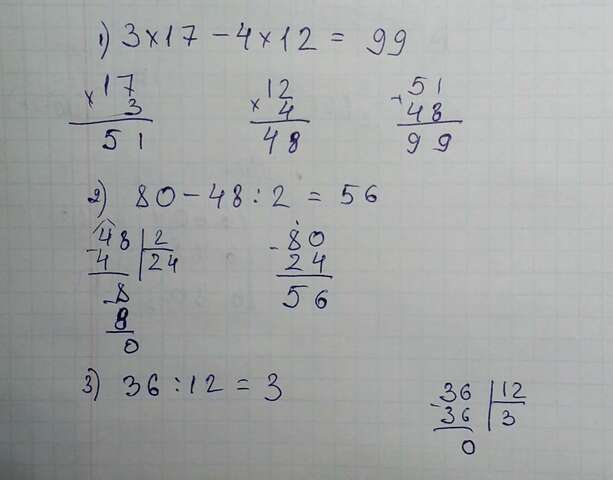 1) 3×17-4×12 = 99
×17 ×12 +51
3 4 48
51 48 99
2) 80-48:2 = 56
-48 2 -80
4 24 24
-8 56
8
0
3) 36:12 = 3
-36 12
36 3
0